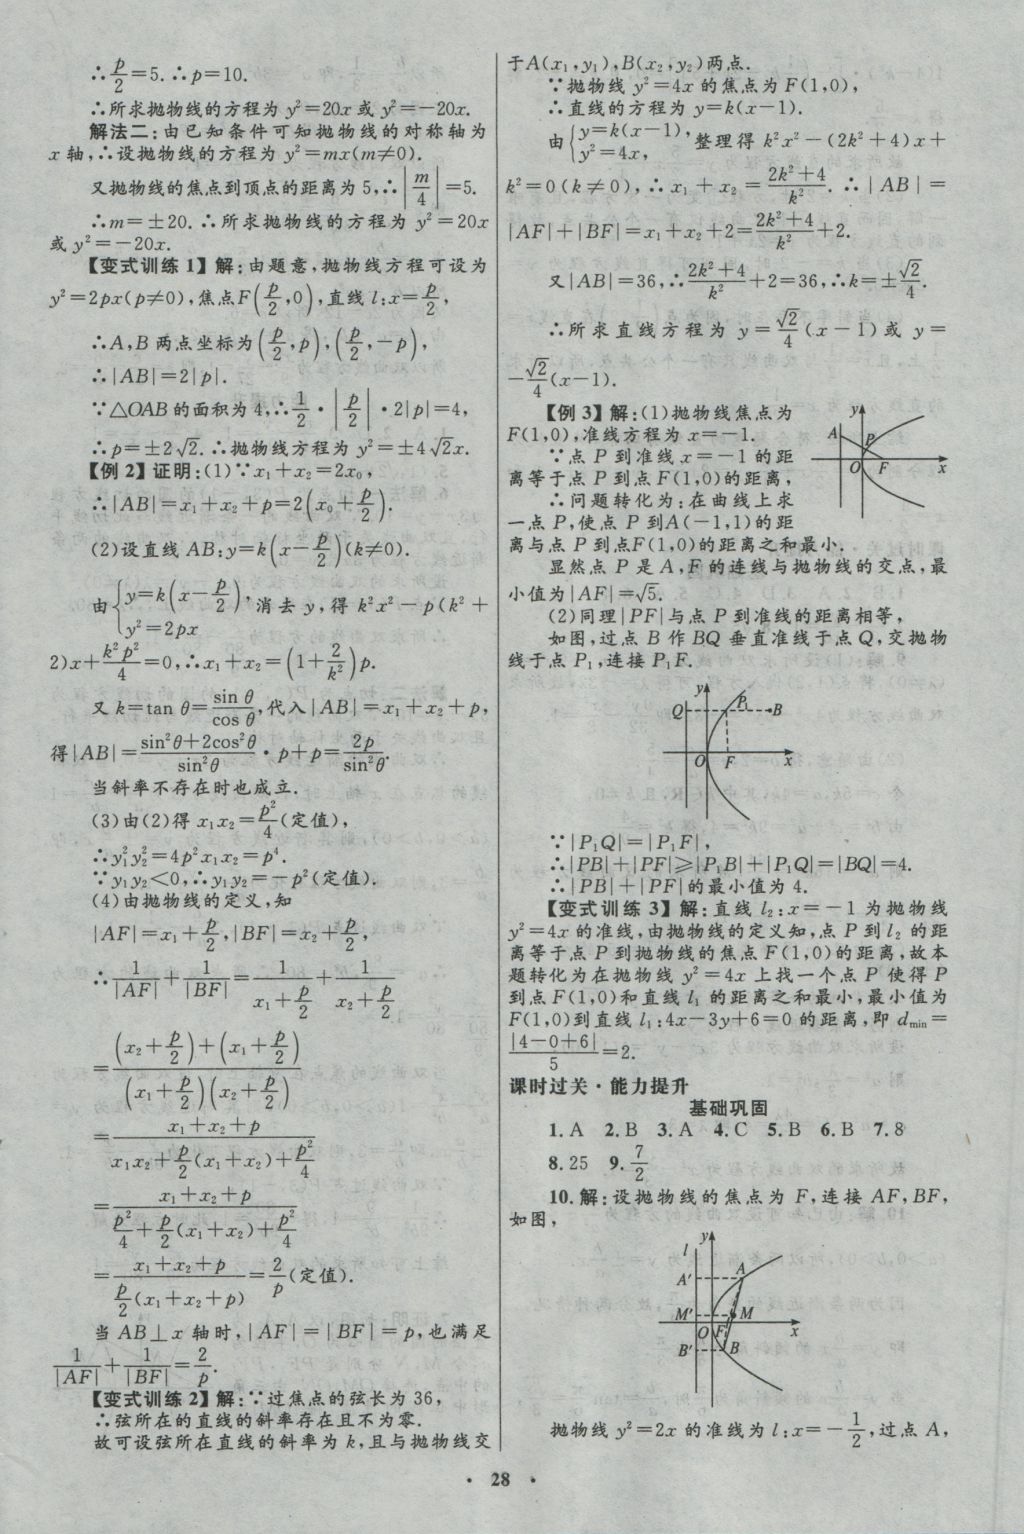 ∴p/2=5.∴p=10.
∴所求抛物线的方程为 y²=20x 或 y²=-20x.
解法二:由已知条件可知抛物线的对称轴为
x 轴,∴设抛物线的方程为 y²=mx(m≠0).
又抛物线的焦点到顶点的距离为 5,∴|m/4|=5.
∴m=±20.∴所求抛物线的方程为 y²=20x
或 y²=-20x.
【变式训练 1】解:由题意,抛物线方程可设为
y²=2px(p≠0),焦点F(p/2,0),直线 l:x=p/2,
∴A,B 两点坐标为(p/2,p),(p/2,-p),
∴|AB|=2|p|.
∵△OAB 的面积为 4,∴1/2·|p/2|·2|p|=4,
∴p=±2√2.∴抛物线方程为 y²=±4√2x.
【例 2】证明:(1)∵x₁+x₂=2x₀,
∴|AB|=x₁+x₂+p=2(x₀+p/2).
(2)设直线 AB:y=k(x-p/2)(k≠0).
由{y=k(x-p/2), y²=2px 消去 y,得 k²x²-p(k²+
2)x+k²p²/4=0,∴x₁+x₂=(1+2/k²)p.
又 k=tan θ=sin θ/cos θ,代入|AB|=x₁+x₂+p,
得|AB|=(sin²θ+2cos²θ)/sin²θ·p+p=2p/sin²θ.
当斜率不存在时也成立.
(3)由(2)得 x₁x₂=p²/4(定值),
∴y₁²y₂²=4p²x₁x₂=p⁴.
∵y₁y₂<0,∴y₁y₂=-p²(定值).
(4)由抛物线的定义,知
|AF|=x₁+p/2,|BF|=x₂+p/2,
∴1/|AF|+1/|BF|=1/(x₁+p/2)+1/(x₂+p/2)
=((x₂+p/2)+(x₁+p/2))/((x₁+p/2)(x₂+p/2))
=(x₁+x₂+p)/(x₁x₂+p/2(x₁+x₂)+p²/4)
=(x₁+x₂+p)/(p²/4+p/2(x₁+x₂)+p²/4)
=(x₁+x₂+p)/(p/2(x₁+x₂+p))=2/p(定值).
当 AB⊥x 轴时,|AF|=|BF|=p,也满足
1/|AF|+1/|BF|=2/p.
【变式训练 2】解:∵过焦点的弦长为 36,
∴弦所在的直线的斜率存在且不为零.
故可设弦所在直线的斜率为 k,且与抛物线交
于A(x₁,y₁),B(x₂,y₂)两点.
∵抛物线 y²=4x 的焦点为 F(1,0),
∴直线的方程为 y=k(x-1).
由{y=k(x-1), y²=4x, 整理得 k²x²-(2k²+4)x+
k²=0(k≠0),∴x₁+x₂=(2k²+4)/k².∴|AB|=
|AF|+|BF|=x₁+x₂+2=(2k²+4)/k²+2.
又|AB|=36,∴(2k²+4)/k²+2=36,∴k=±√2/4.
∴所求直线方程为 y=√2/4(x-1)或 y=
-√2/4(x-1).
【例 3】解:(1)抛物线焦点为
F(1,0),准线方程为 x=-1.
∵点 P 到准线 x=-1 的距
离等于点 P 到点 F(1,0)的距离,
∴问题转化为:在曲线上求
一点 P,使点 P 到A(-1,1)的距
离与点 P 到点F(1,0)的距离之和最小.
y
A P
O F x
显然点 P 是 A,F 的连线与抛物线的交点,最
小值为|AF|=√5.
(2)同理|PF|与点 P 到准线的距离相等,
如图,过点 B 作 BQ 垂直准线于点 Q,交抛物
线于点 P₁,连接 P₁F.
y
Q P₁ B
O F x
∵|P₁Q|=|P₁F|,
∴|PB|+|PF|≥|P₁B|+|P₁Q|=|BQ|=4.
∴|PB|+|PF|的最小值为 4.
【变式训练 3】解:直线 l₂:x=-1 为抛物线
y²=4x 的准线,由抛物线的定义知,点 P 到 l₂ 的距
离等于点 P 到抛物线的焦点 F(1,0)的距离,故本
题转化为在抛物线 y²=4x 上找一个点 P 使得 P
到点 F(1,0)和直线 l₁ 的距离之和最小,最小值为
F(1,0)到直线 l₁:4x-3y+6=0 的距离,即 dmin=
|4-0+6|/5=2.
课时过关·能力提升
基础巩固
1.A 2.B 3.A 4.C 5.B 6.B 7.8
8.25 9.7/2
10.解:设抛物线的焦点为 F,连接 AF,BF,
如图,
l y
A′ A
M′ M
O F x
B′ B
抛物线 y²=2x 的准线为 l:x=-1/2,过点 A,
· 28 ·